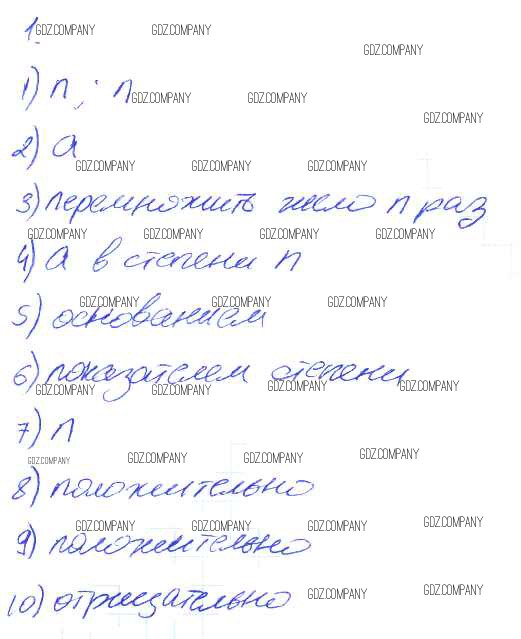 1.
GDZ.COMPANY GDZ.COMPANY
GDZ.COMPANY
1) n ; n
GDZ.COMPANY GDZ.COMPANY
GDZ.COMPANY
2) a
GDZ.COMPANY GDZ.COMPANY GDZ.COMPANY
3) перемножить число n раз
GDZ.COMPANY GDZ.COMPANY GDZ.COMPANY GDZ.COMPANY
4) a в степени n
GDZ.COMPANY GDZ.COMPANY GDZ.COMPANY
5) основанием
6) показателем степени
GDZ.COMPANY GDZ.COMPANY GDZ.COMPANY GDZ.COMPANY
7) n
GDZ.COMPANY GDZ.COMPANY GDZ.COMPANY GDZ.COMPANY
8) положительно
GDZ.COMPANY GDZ.COMPANY GDZ.COMPANY GDZ.COMPANY
9) положительно
10) отрицательно
GDZ.COMPANY GDZ.COMPANY